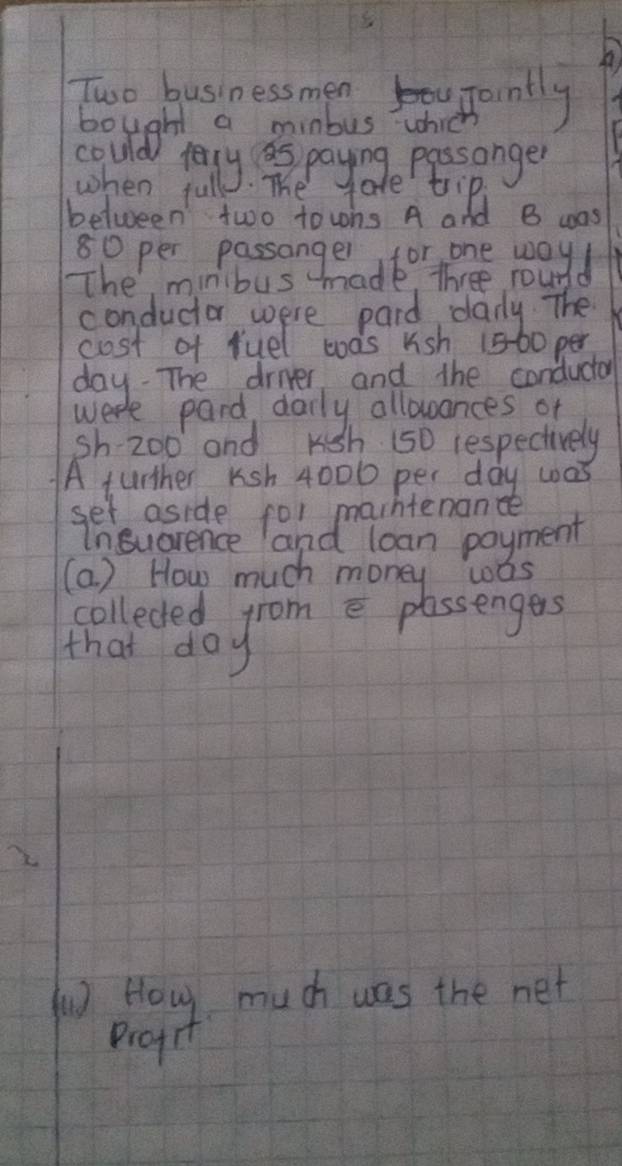 Two businessmen Jointly
bought a minbus which
could 25 paying passanger
when full. The fare trip
between two towns A and B was
80 per passanger for one way
The minibus made three round
conductor were paid daily. The
cost of fuel was Ksh 1500 per
day. The driver and the conductor
were paid daily allowances of
Sh-200 and Ksh 150 respectively
A further Ksh 4000 per day was
set aside for maintenance
insuarence and loan payment
(a) How much money was
collected from e passengers
that day
(ii) How much was the net
Profit